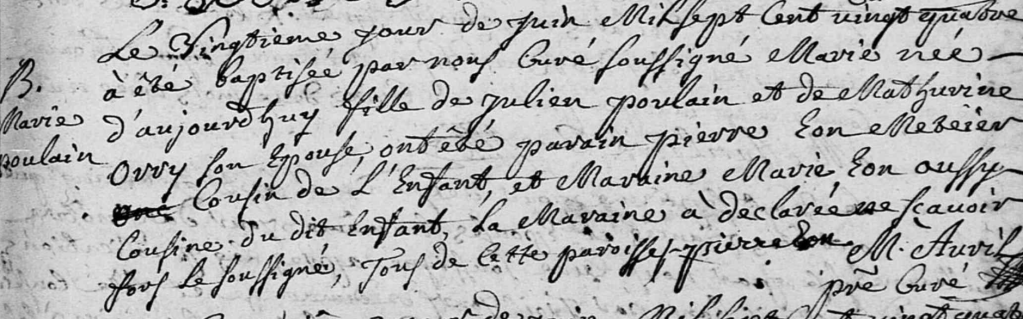 Le Vingtieme jour de juin Mil sept Cent vingt quatre
à été baptisée par nous Curé soussigné Marie née
B.
d'aujourdhuy fille de Julien poulain et de Mathurine
Marie
poulain
Orry son Epouse, ont été parain pierre Eon Meteier
Cousin de L'Enfant, et Maraine Marie Eon aussy
Cousine du dit Enfant, La Maraine à declarée ne sçavoir
fors le soussigné, Tous de cette paroisse, pierre Eon M. Auril
prë Curé